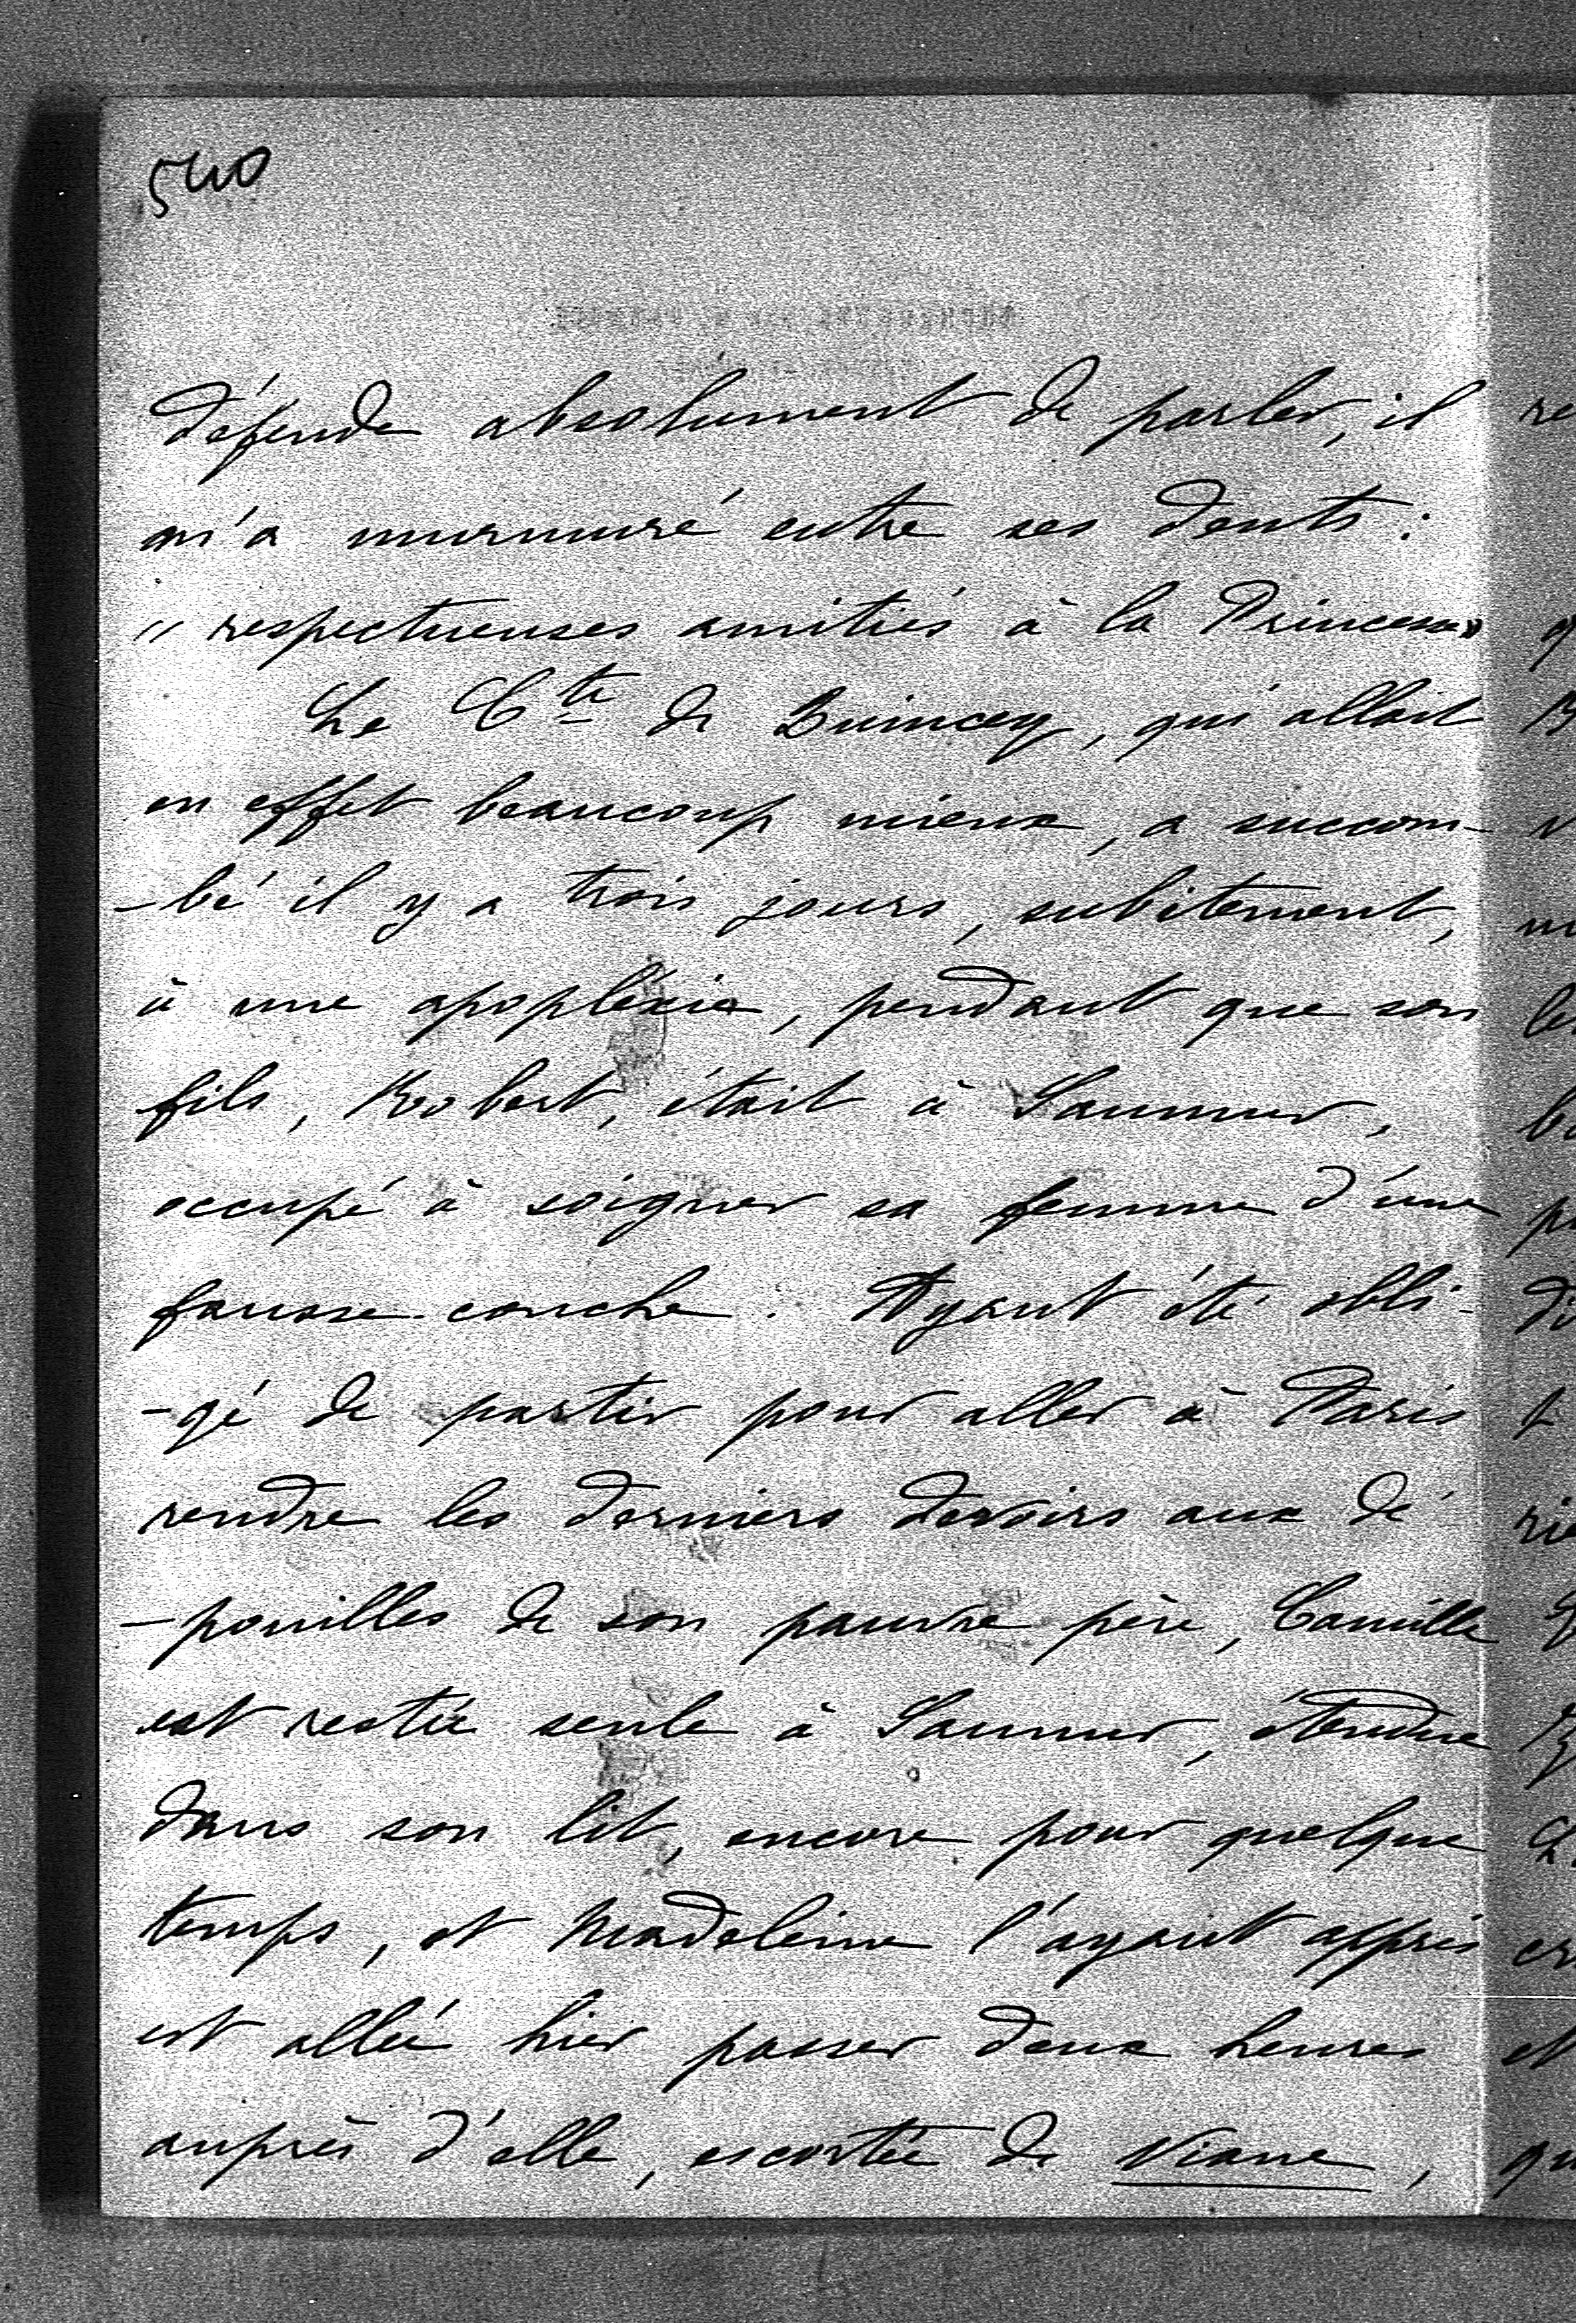 540
défende absolument de parler, il
m'a murmuré entre ses dents :
" respectueuses amitiés à la Princesse"
Le Cte de Buincey, qui allait
en effet beaucoup mieux, a succom-
-bé il y a trois jours, subitement,
à une apopléxie, pendant que son
fils, Robert, était à Saumur,
occupé à soigner sa femme d'une
fausse-couche. Ayant été obli-
-gé de partir pour aller à Paris
rendre les derniers devoirs aux dé
-pouilles de son pauvre père, Camille
est restée seule à Saumur, étendue
dans son lit, encore pour quelque
temps, et Madeleine l'ayant appris
est allée hier passer deux heures
auprès d'elle, escortée de Viane,